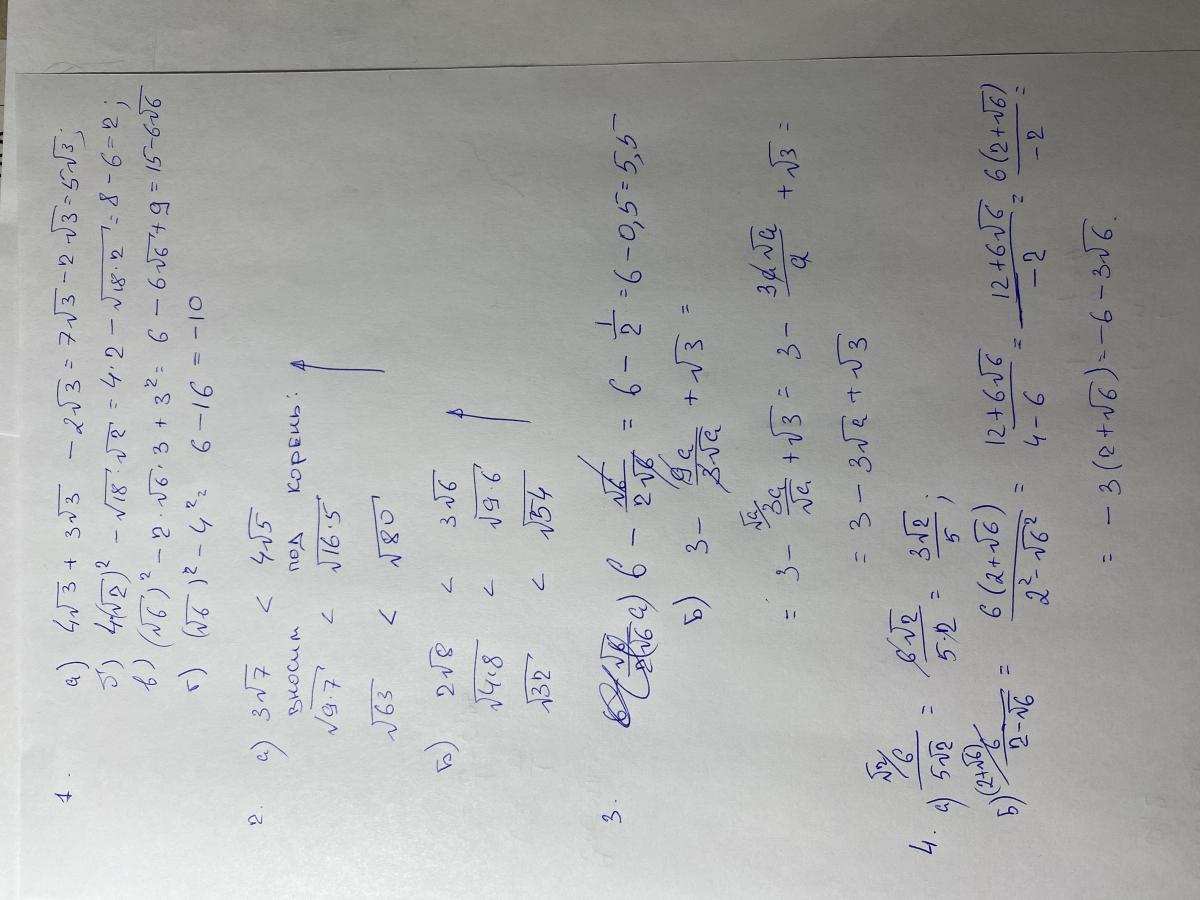 1. а) 4√3 + 3√3 - 2√3 = 7√3 - 2√3 = 5√3;
б) 4(√2)² - √18·√2 = 4·2 - √18·2 = 8 - 6 = 2;
в) (√6)² - 2·√6·3 + 3² = 6 - 6√6 + 9 = 15 - 6√6
г) (√6)² - 4² = 6 - 16 = -10
2. а) 3√7 < 4√5
вносим под корень:
√9·7 < √16·5
√63 < √80
б) 2√8 < 3√6
√4·8 < √9·6
√32 < √54
3. а) 6 - √6/2√6 = 6 - 1/2 = 6 - 0,5 = 5,5
б) 3 - 9a/3√a + √3 =
= 3 - 3a/√a + √3 = 3 - 3a√a/a + √3 =
= 3 - 3√a + √3
4. а) √2/ 6/5√2 = 6√2/5·2 = 3√2/5;
б) (2+√6)/ 6/2-√6 = 6(2+√6)/2²-√6² = 12+6√6/4-6 = 12+6√6/-2 = 6(2+√6)/-2 =
= -3(2+√6) = -6 - 3√6.